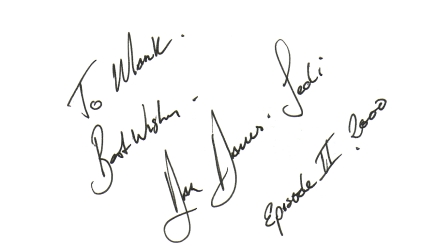 To Mark.
Best Wishes.
Jedi
Episode II. 2000